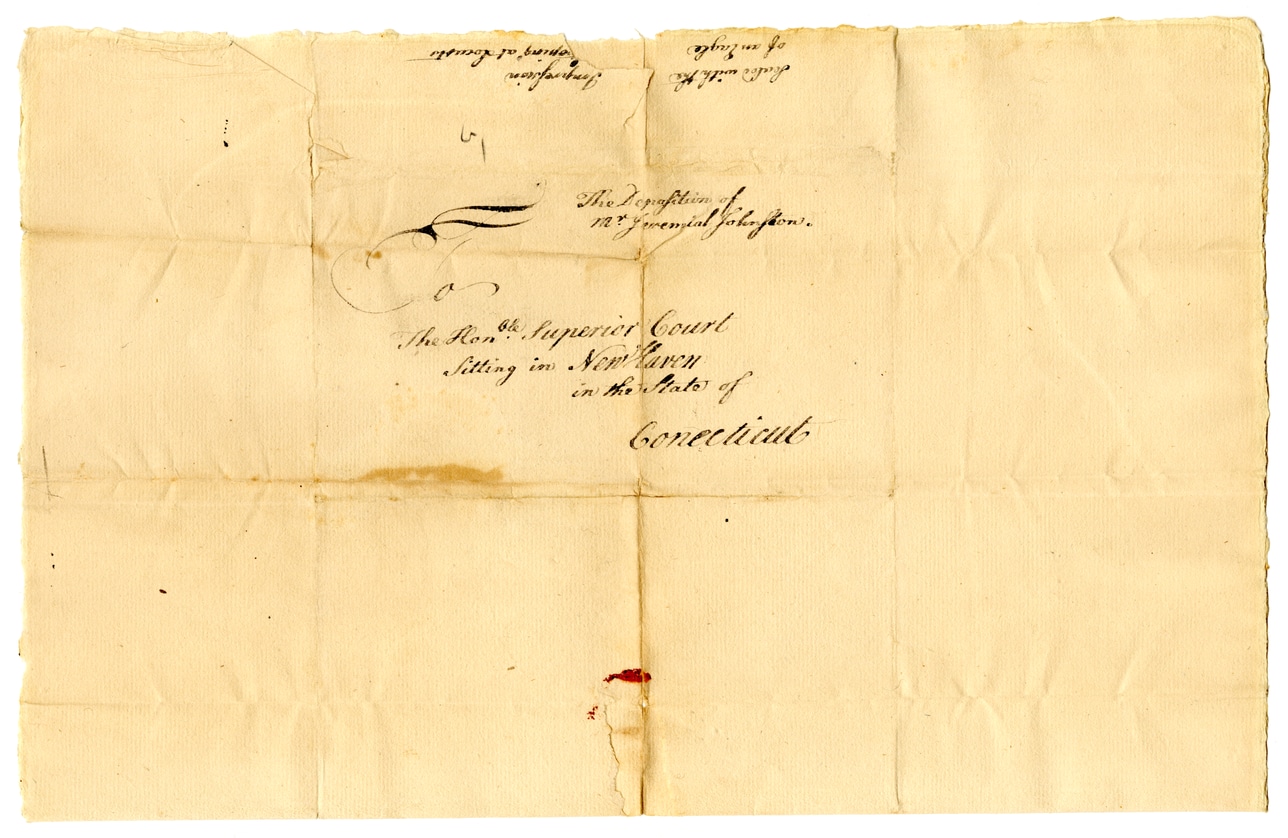 Sealed with the Impression
of an Eagle at Locusts
The Deposition of
Mr. Jeremiah Johnston.
To
The Honble. Superior Court
Sitting in New Haven
in the State of
Conecticut